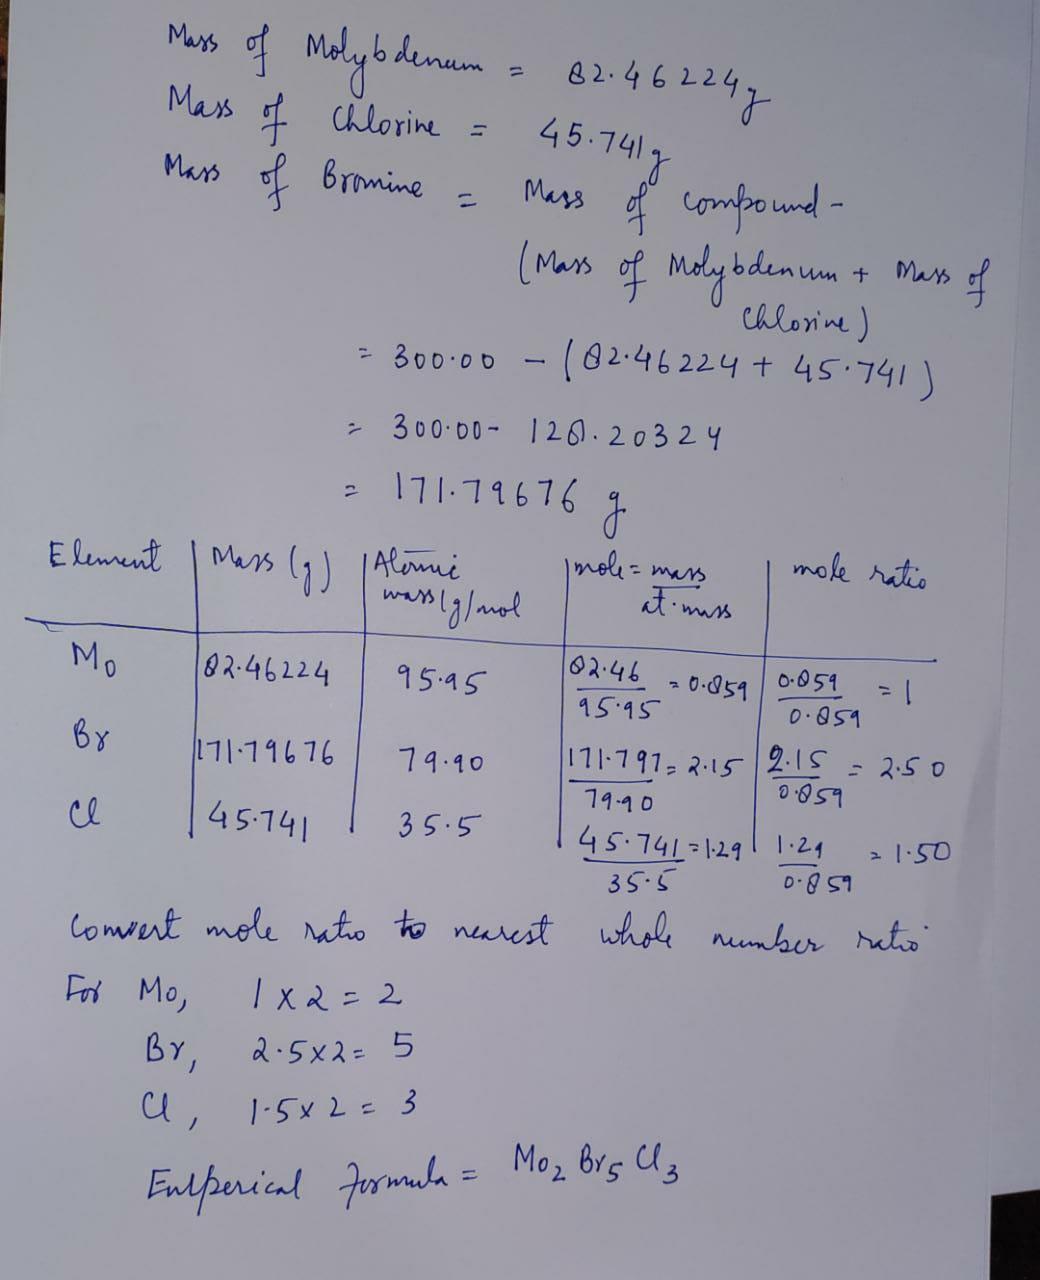 Mass of Molybdenum = 82.46224g
Mass of Chlorine = 45.741g
Mass of Bromine = Mass of compound -
(Mass of Molybdenum + Mass of
Chlorine)
= 300.00 - (82.46224 + 45.741)
= 300.00 - 128.20324
= 171.79676 g
Element | Mass (g) | Atomic mass (g/mol | mole = mass/at. mass | mole ratio
Mo | 82.46224 | 95.95 | 82.46/95.95 = 0.859 | 0.859/0.859 = 1
Br | 171.79676 | 79.90 | 171.797/79.90 = 2.15 | 2.15/0.859 = 2.50
Cl | 45.741 | 35.5 | 45.741/35.5 = 1.29 | 1.29/0.859 = 1.50
Convert mole ratio to nearest whole number ratio
For Mo, 1 x 2 = 2
Br, 2.5 x 2 = 5
Cl, 1.5 x 2 = 3
Emperical formula = Mo₂ Br₅ Cl₃